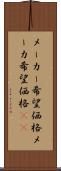 メーカー希望価格メ
ーカ希望価格××